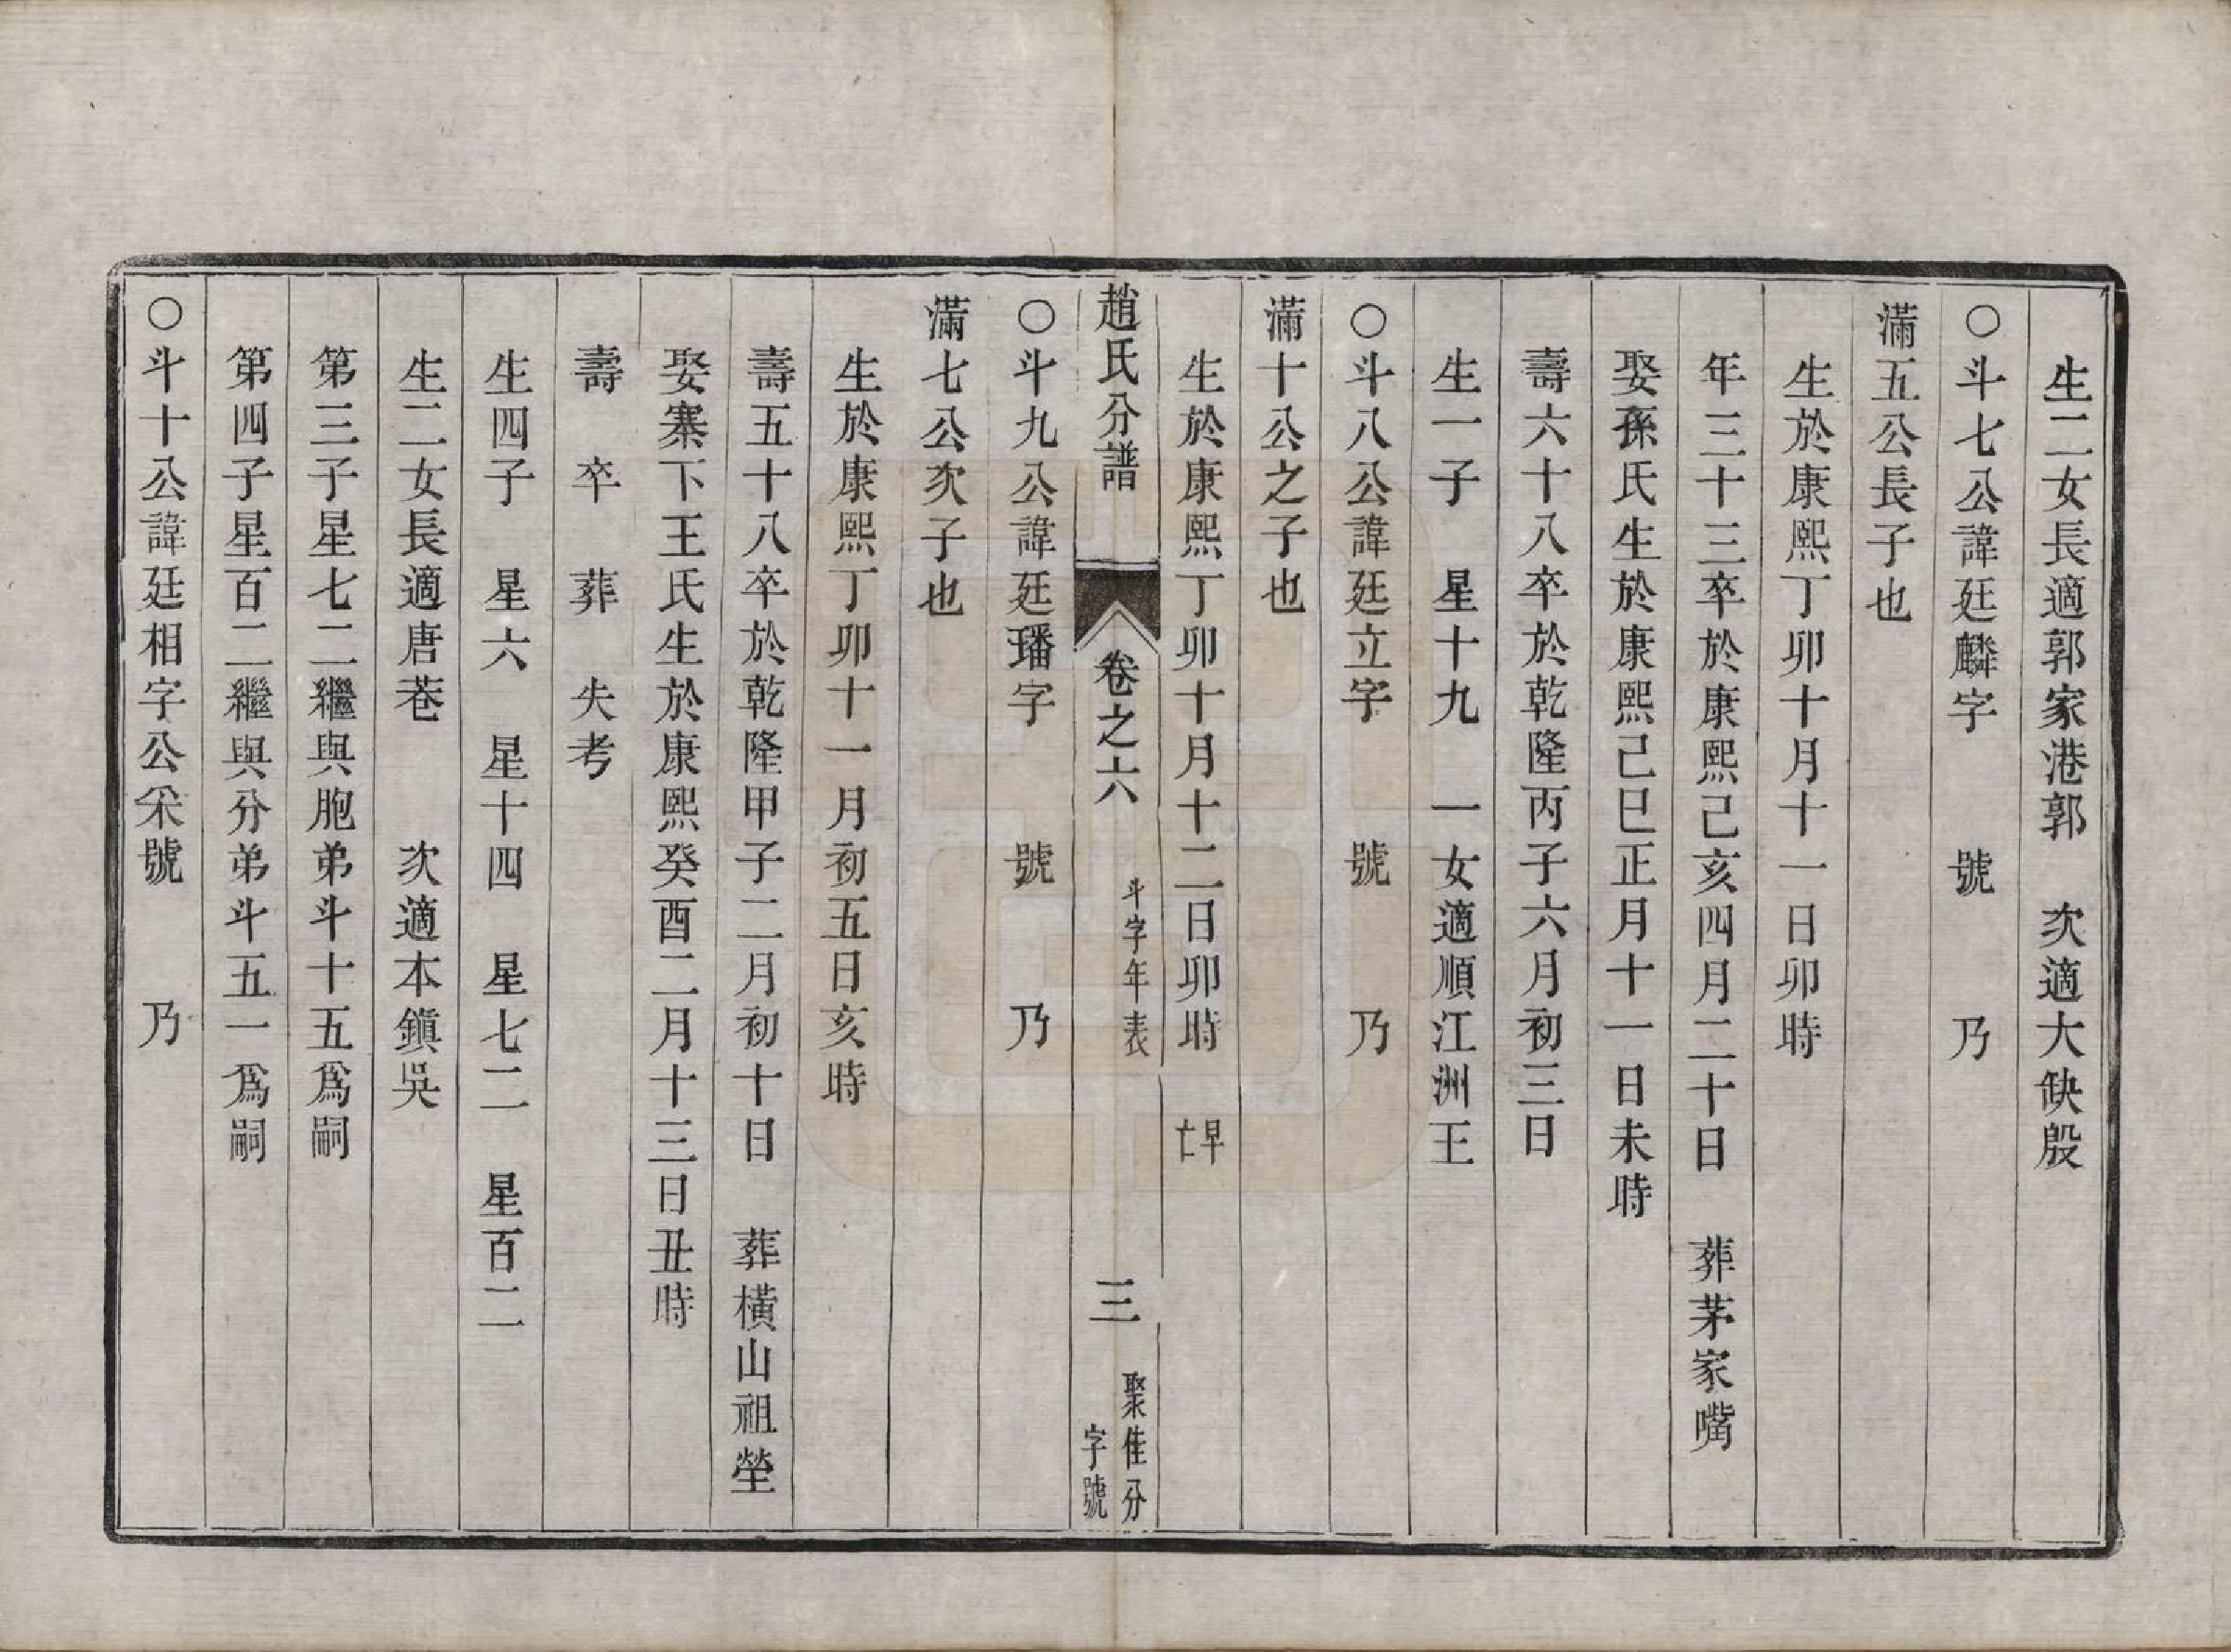 生二女長適郭家港郭　次適大缺殷
〇斗七公諱廷麟字　　號　　乃
滿五公長子也
生於康熙丁卯十月十一日卯時
年三十三卒於康熙己亥四月二十日　葬茅家嘴
娶孫氏生於康熙己巳正月十一日未時
壽六十八卒於乾隆丙子六月初三日
生一子　星十九　一女適順江洲王
〇斗八公諱廷立字　　號　　乃
滿十公之子也
生於康熙丁卯十月十二日卯時　早亡
趙氏分譜　卷之六　斗字年表　三　聚佳分字號
〇斗九公諱廷璠字　　號　　乃
滿七公次子也
生於康熙丁卯十一月初五日亥時
壽五十八卒於乾隆甲子二月初十日　葬橫山祖塋
娶寨下王氏生於康熙癸酉二月十三日丑時
壽　卒　葬　失考
生四子　星六　星十四　星七二　星百二
生二女長適唐巷　　次適本鎮吳
第三子星七二繼與胞弟斗十五爲嗣
第四子星百二繼與分弟斗五一爲嗣
〇斗十公諱廷相字公采號　　乃